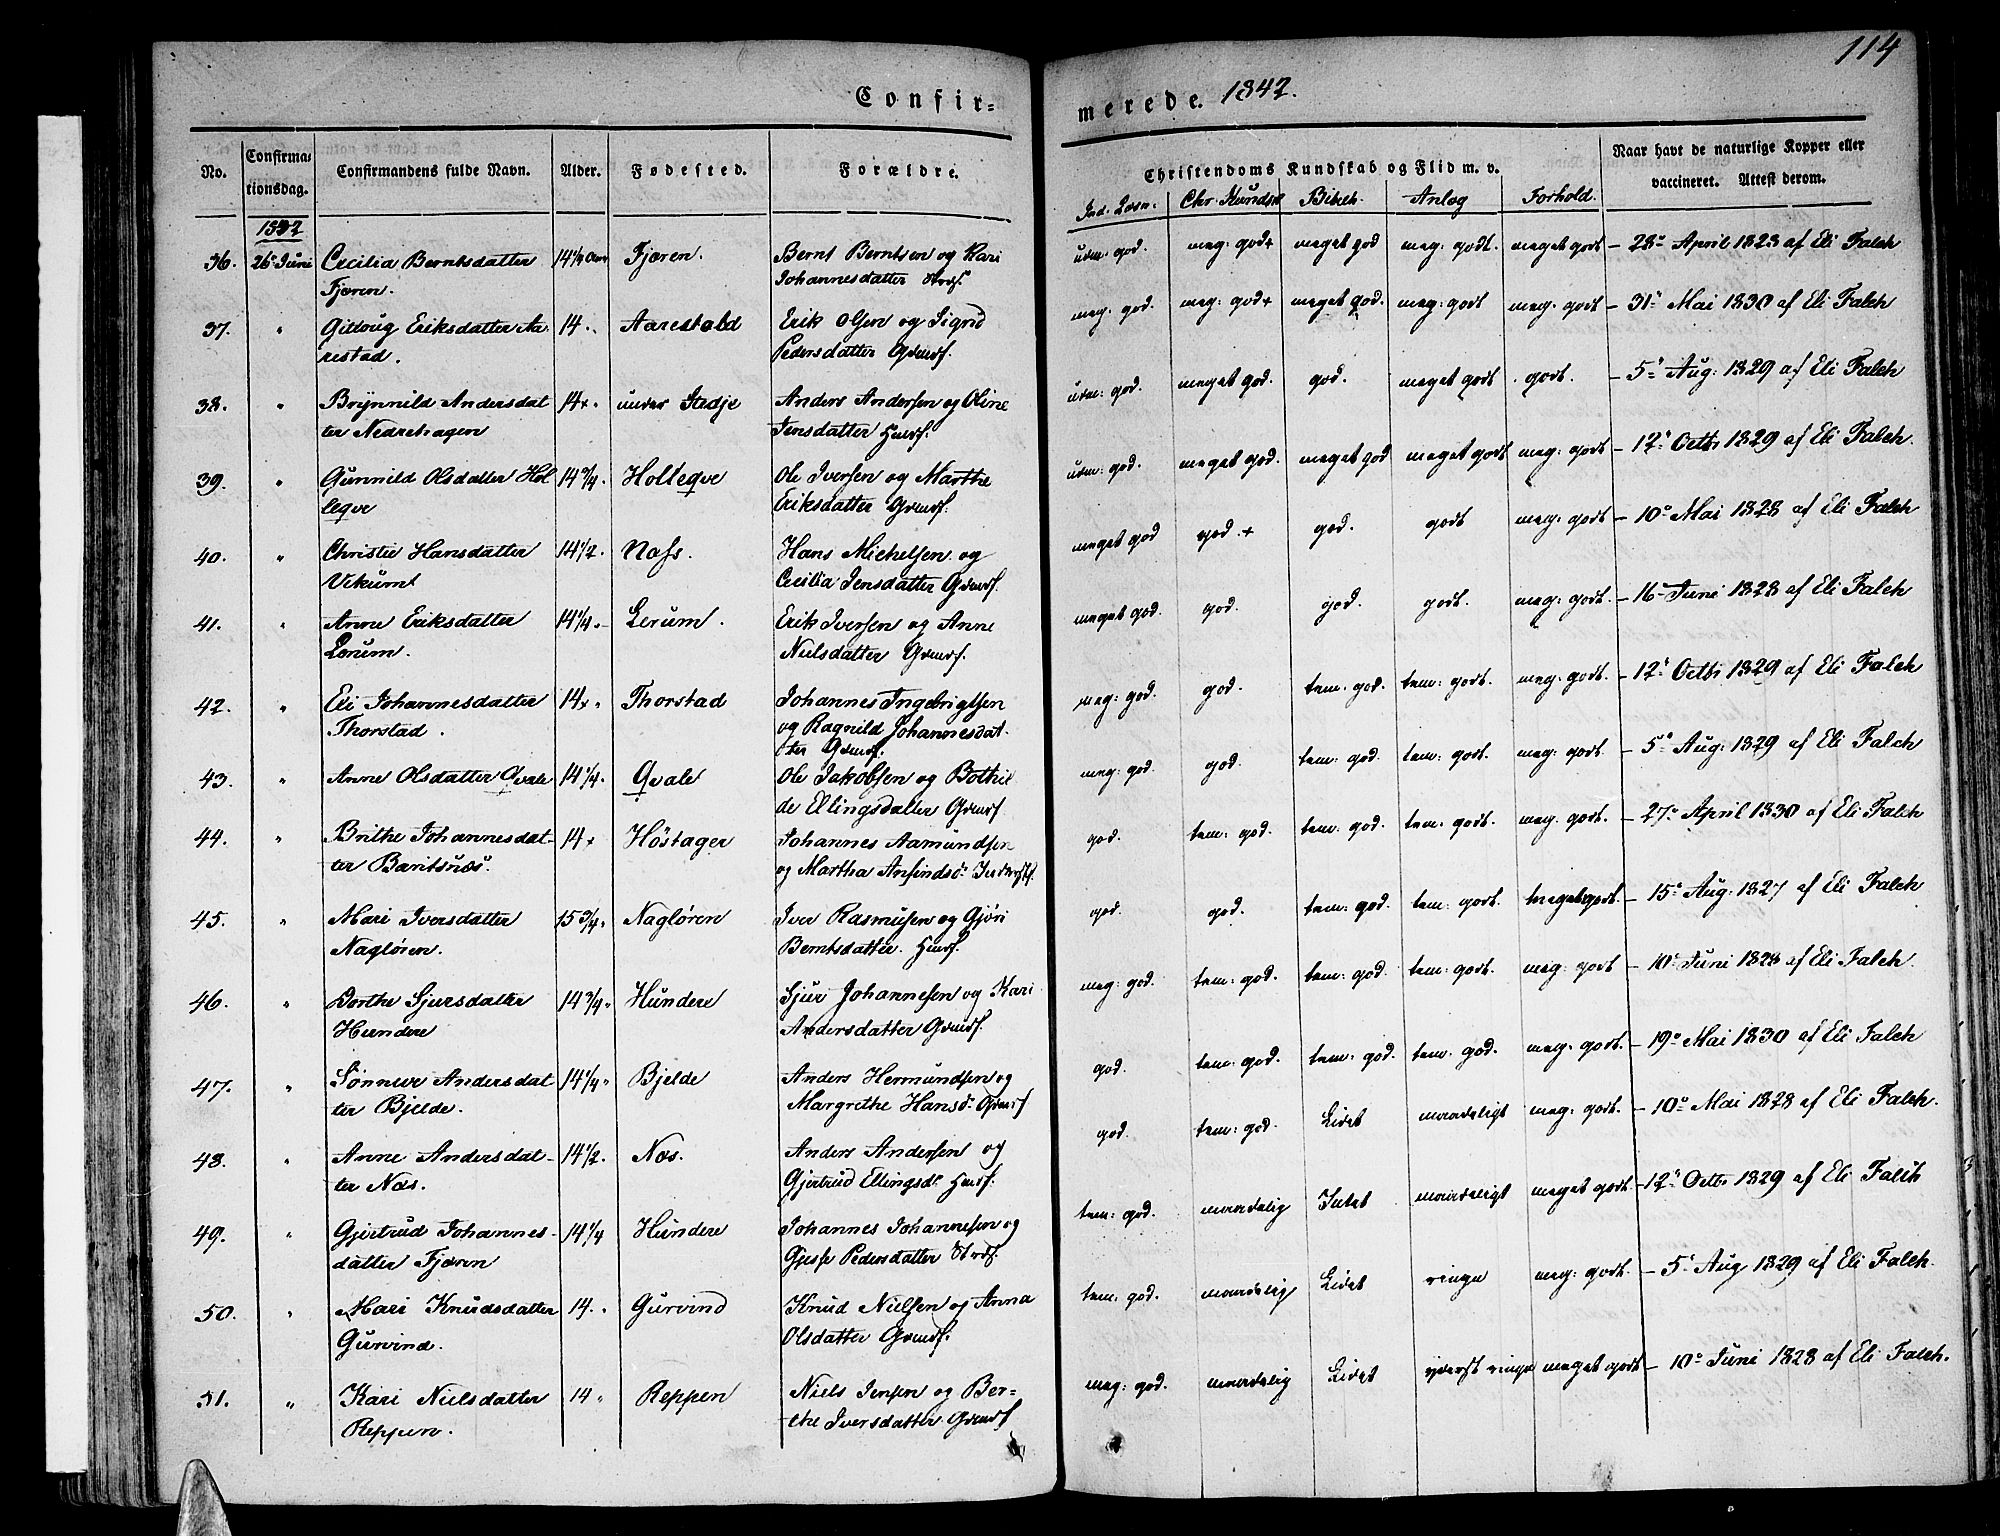 114
Confir-
merede. 1842.
No.
Confirma-
tionsdag.
Confirmandens fulde Navn.
Alder.
Fødested.
Forældre.
Christendoms Kundskab og Flid m. v.
Naar havt de naturlige Kopper eller
vaccineret. Attest derom.
Ind. Læsn.
Chr. Kundsk
Bibelh.
Anlæg
Forhold.
1842
36. 26 Juni Cecilia Berntsdatter Fjæren. Bernt Berntsen og Kari
Fjæren. Johannesdatter
udm: god. meg: god+ meget god meg: godt. meget godt – 28 April 1828 af Eli Falch
37. " Gitlaug Eriksdatter Aa- 14 " Aarestad Erik Olsen og Sigrid
restad. Pedersdatter Grmdf.
meg: god. meg: god+ meget god. meg: godt meg: godt – 31 Mai 1830 af Eli Falch
38. " Brynnild Andersdat 14 " under Stedje Anders Andersen og Oline
ter Nedrehagen Jensdatter Hmdf.
udm: god. meget god. god. meget godt godt. – 5 Aug: 1829 af Eli Falch
39. " Gunnild Olsdatter Hol 14 3/4. Holleqve Ole Iversen og Marthe
leqve Eriksdatter Grmdf.
udm: god. meget god. meget god meget godt meg: godt – 12 Octbr 1829 af Eli Falch.
40. " Christie Hansdatter 14 1/2. Næss. Hans Michelsen og
Vikumt Cecilia Jensdatter Grmdf.
meget god god.+ god. godt meg: godt – 10 Mai 1828 af Eli Falch
41. " Anne Eriksdatter 14 1/4 Lerum. Erik Iversen og Anne
Lerum. Nielsdatter Grmdf.
meget god. god. god. godt. meg: godt. – 16 Juni 1828 af Eli Falch
42. " Eli Johannesdatter 14 " Thorstad Johannes Ingebrigtsen
Thorstad. og Ragnild Johannesdat-
ter Grmdf.
meg: god. god. tem: god. tem: godt. meg: godt. – 12 Octbr 1829 af Eli Falch
43. " Anne Olsdatter Qvale 14 1/4. Qvale Ole Jakobsen og Bothil
de Ellingsdatter Grmdf
meg: god god. tem: god. tem: godt. meg: godt. – 5 Aug: 1829 af Eli Falch
44. " Brithe Johannesdat- 14 Høstager Johannes Aamundsen
ter Baritsnæs. og Martha Ansindsdr
god. tem: god. tem: god. tem: godt. meg: godt. – 27 April 1830 af Eli Falch
45. " Mari Iversdatter 15 3/4 " Nagløren Iver Rasmusen og Gjøri
Nagløren. Berntsdatter. Hmdf.
god. god. tem: god. tem: godt. meget godt. – 15 Aug: 1827 af Eli Falch
46. " Dorthe Sjursdatter 14 3/4 " Hundere Sjur Johannesen og Kari
Hundere Andersdatter Grmdf.
meg: god. tem: god. tem: god. tem: godt. meg: godt – 10 Juni 1828 af Eli Falch.
47. " Sønneve Andersdat 14 1/4 " Bjelde Anders Hermundsen og
ter Bjelde. Margrethe Hansdr Grmdf
god. tem: god. tem: god. tem: god. meg: godt. – 19 Mai 1830 af Eli Falch
48. " Anne Andersdat- 14 1/2. Næs. Anders Andersen og
ter Næs. Gjertrud Ellingsdr Hmdf.
god. tem: god. Lidet maadeligt meg: godt. – 10 Mai 1828 af Eli Falch.
49. " Gjertrud Johannes- 14 1/4 Hundere Johannes Johannesen og
datter Fjæren Pedersdatter
tem: god. maadelig maadeligt meget godt – 12 Octbr 1829 af Eli Falch
50. " Mari Knudsdatter 14. " Gurvind Knud Nielsen og Anna
Gurvind. Olsdatter Grmdf.
tem: god. maadelig Lidet ringe meg: godt. – 5 Aug 1829 af Eli Falch.
51. " Kari Nielsdatter 14 " Reppen Niels Jensen og Ber-
Reppen. the Iversdatter Grmdf
meg: god. maadelig Lidet yderst ringe meget godt – 10 Juni 1828 af Eli Falch.